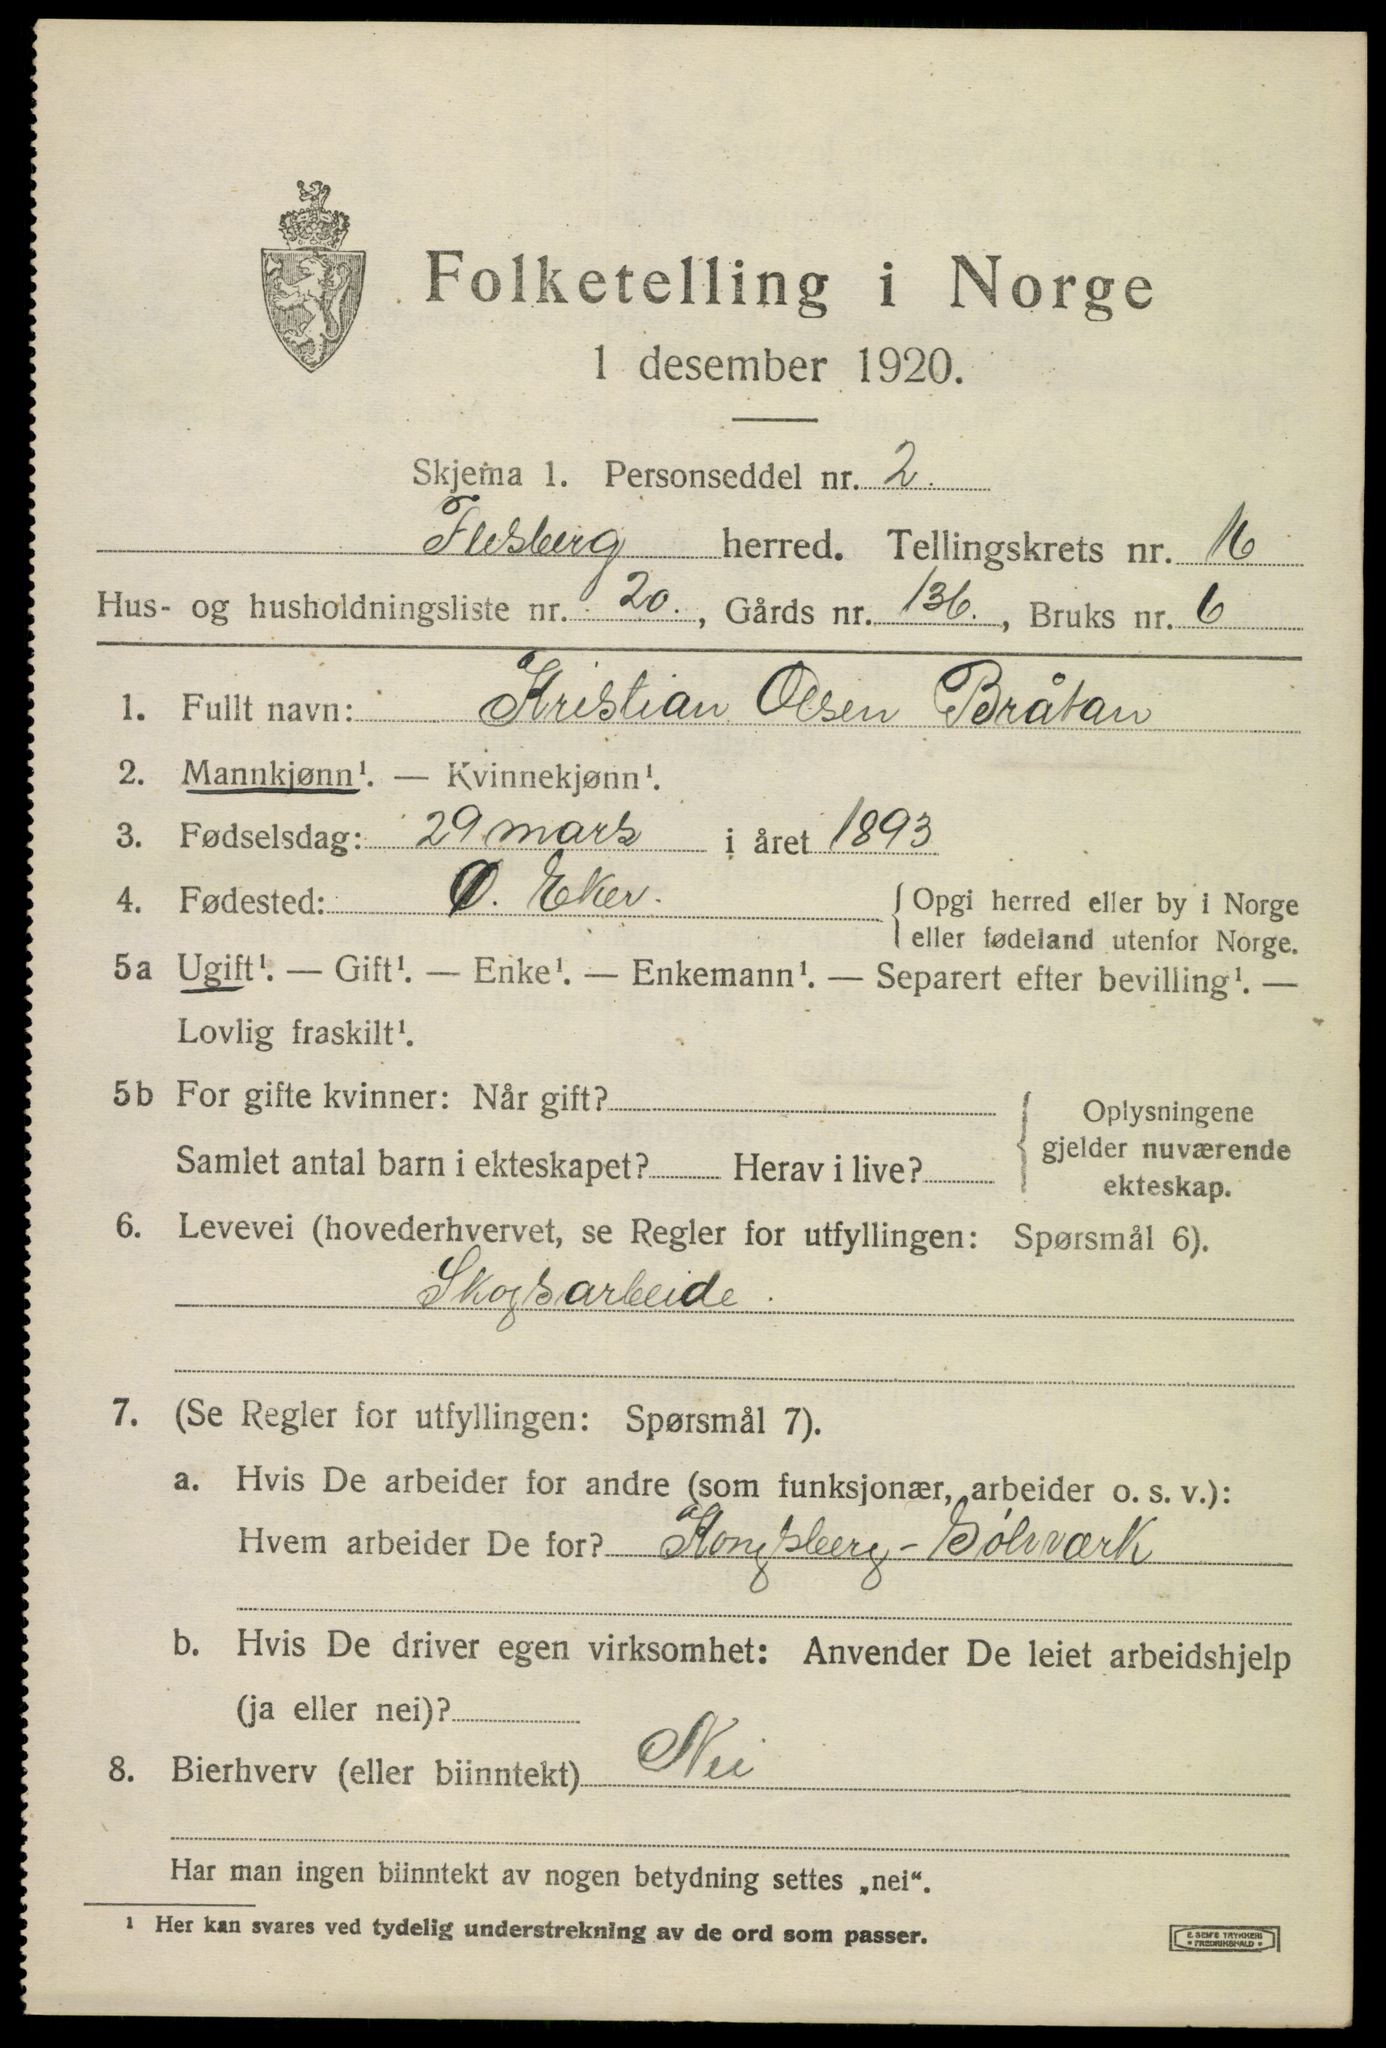 Folketelling i Norge
1 desember 1920.
Skjema 1. Personseddel nr. 2.
Flesberg herred. Tellingskrets nr. 16
Hus- og husholdningsliste nr. 20., Gårds nr. 136., Bruks nr. 6
1. Fullt navn: Kristian Olsen Bråtan
2. Mannkjønn¹. — Kvinnekjønn¹.
3. Fødselsdag: 29 mars i året 1893
4. Fødested: Ø. Eker. { Opgi herred eller by i Norge
eller fødeland utenfor Norge.
5a Ugift¹. — Gift¹. — Enke¹. — Enkemann¹. — Separert efter bevilling¹. —
Lovlig fraskilt¹.
5b For gifte kvinner: Når gift?
Samlet antal barn i ekteskapet? Herav i live?
{ Oplysningene
gjelder nuværende
ekteskap.
6. Levevei (hovederhvervet, se Regler for utfyllingen: Spørsmål 6).
Skogsarbeide.
7. (Se Regler for utfyllingen: Spørsmål 7).
a. Hvis De arbeider for andre (som funksjonær, arbeider o. s. v.):
Hvem arbeider De for? Kongsberg - Sølvværk
b. Hvis De driver egen virksomhet: Anvender De leiet arbeidshjelp
(ja eller nei)?
8. Bierhverv (eller biinntekt) Nei
Har man ingen biinntekt av nogen betydning settes „nei“.
¹ Her kan svares ved tydelig understrekning av de ord som passer.
E. SEM'S TRYKKERI
• FREDRIKSHALD •